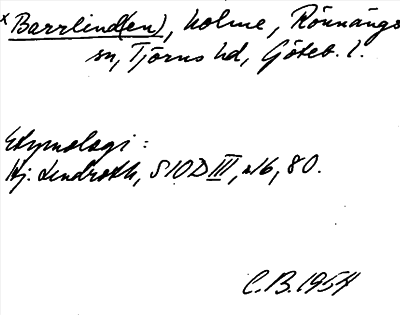 x Barrlind(en), holme, Rönnängs
sn, Tjörns hd, Göteb. l.
Etymologi:
Hj. Lindroth, SIOD III, s. 16, 80.
C.B. 1954